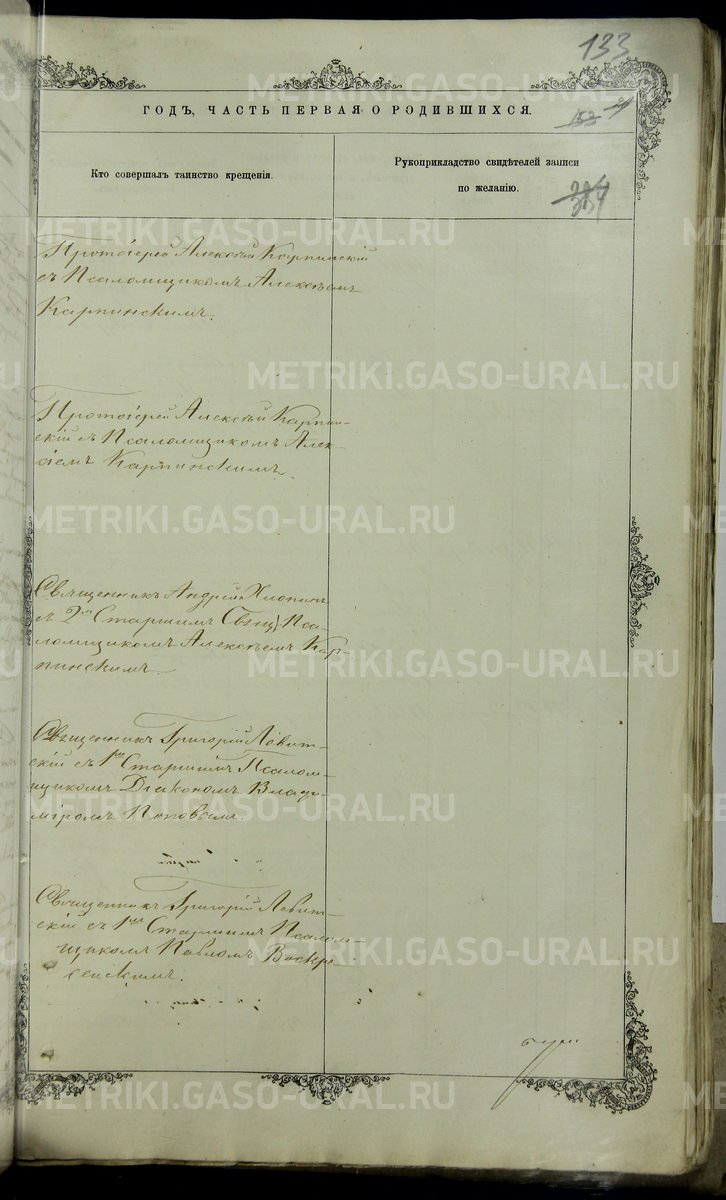 133
ГОДЪ, ЧАСТЬ ПЕРВАЯ О РОДИВШИХСЯ.
Кто совершалъ таинство крещенія.
Рукоприкладство свидѣтелей записи
по желанію.
Протоіерей Алексѣй Карпинскій
съ Псаломщикомъ Алексѣемъ
Карпинскимъ.
Протоіерей Алексѣй Карпин-
скій съ Псаломщикомъ Алек-
сіемъ Карпинскимъ.
Священникъ Андрей
съ 2мъ Старшимъ Пса-
ломщикомъ Алексѣемъ Кар-
пинскимъ.
Священникъ Григорій Левит-
скій съ 1мъ Старшимъ Псалом-
щикомъ Діакономъ Влади-
міромъ Поповымъ.
Священникъ Григорій Левит-
скій съ 1мъ Старшимъ Псалом-
щикомъ Павломъ Воскре-
сенскимъ.
METRIKI.GASO-URAL.RU